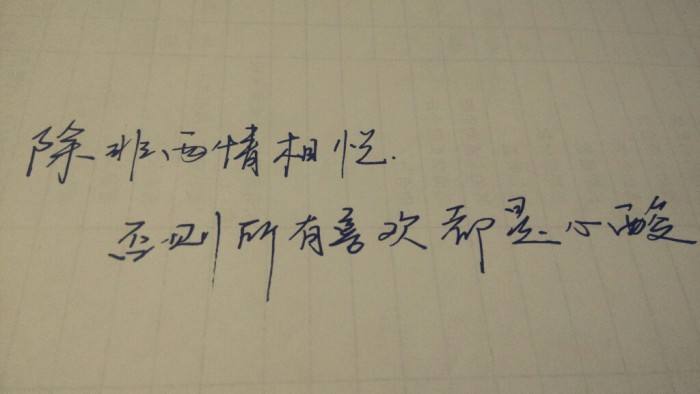 除非两情相悦.
否则所有喜欢都是心酸